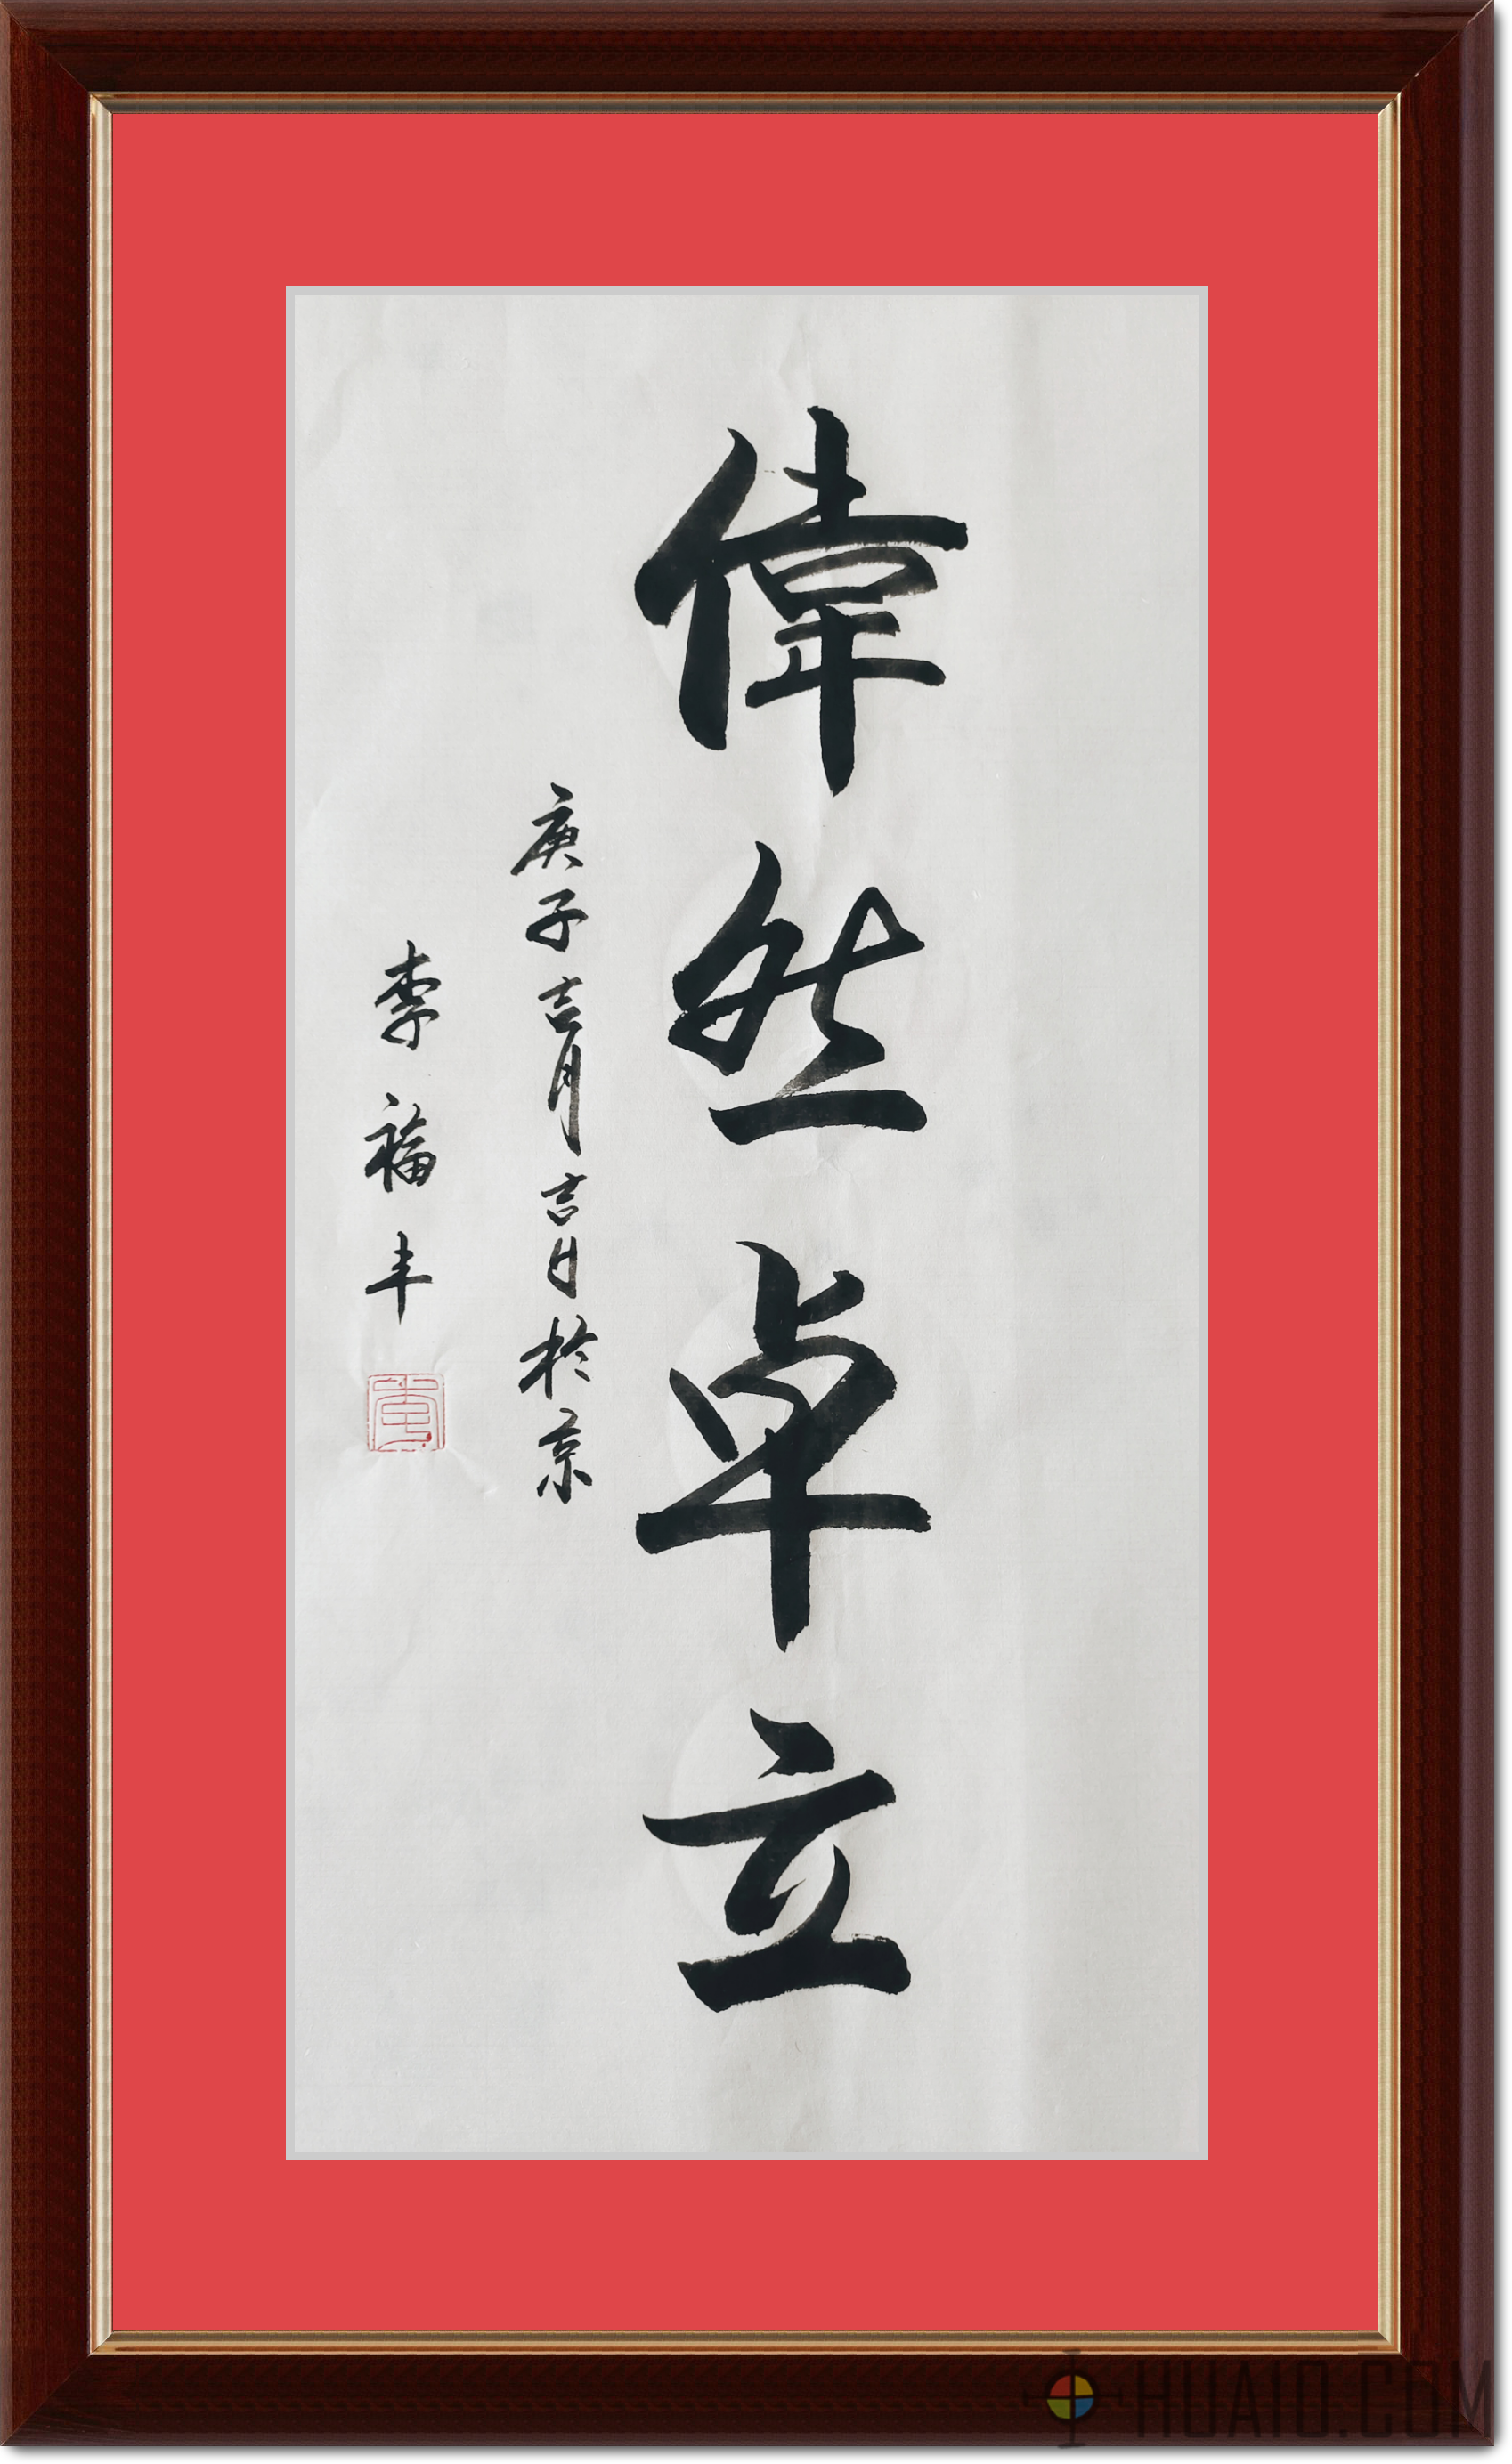 偉然卓立
庚子吉月吉日於京
李福丰
HUAIO.COM